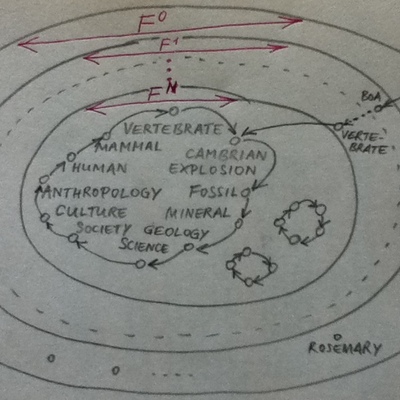 F⁰
F¹
F^N
BOA
VERTE-
BRATE
VERTEBRATE
MAMMAL
CAMBRIAN
EXPLOSION
HUMAN
ANTHROPOLOGY
FOSSIL
CULTURE
MINERAL
SOCIETY
GEOLOGY
SCIENCE
ROSEMARY